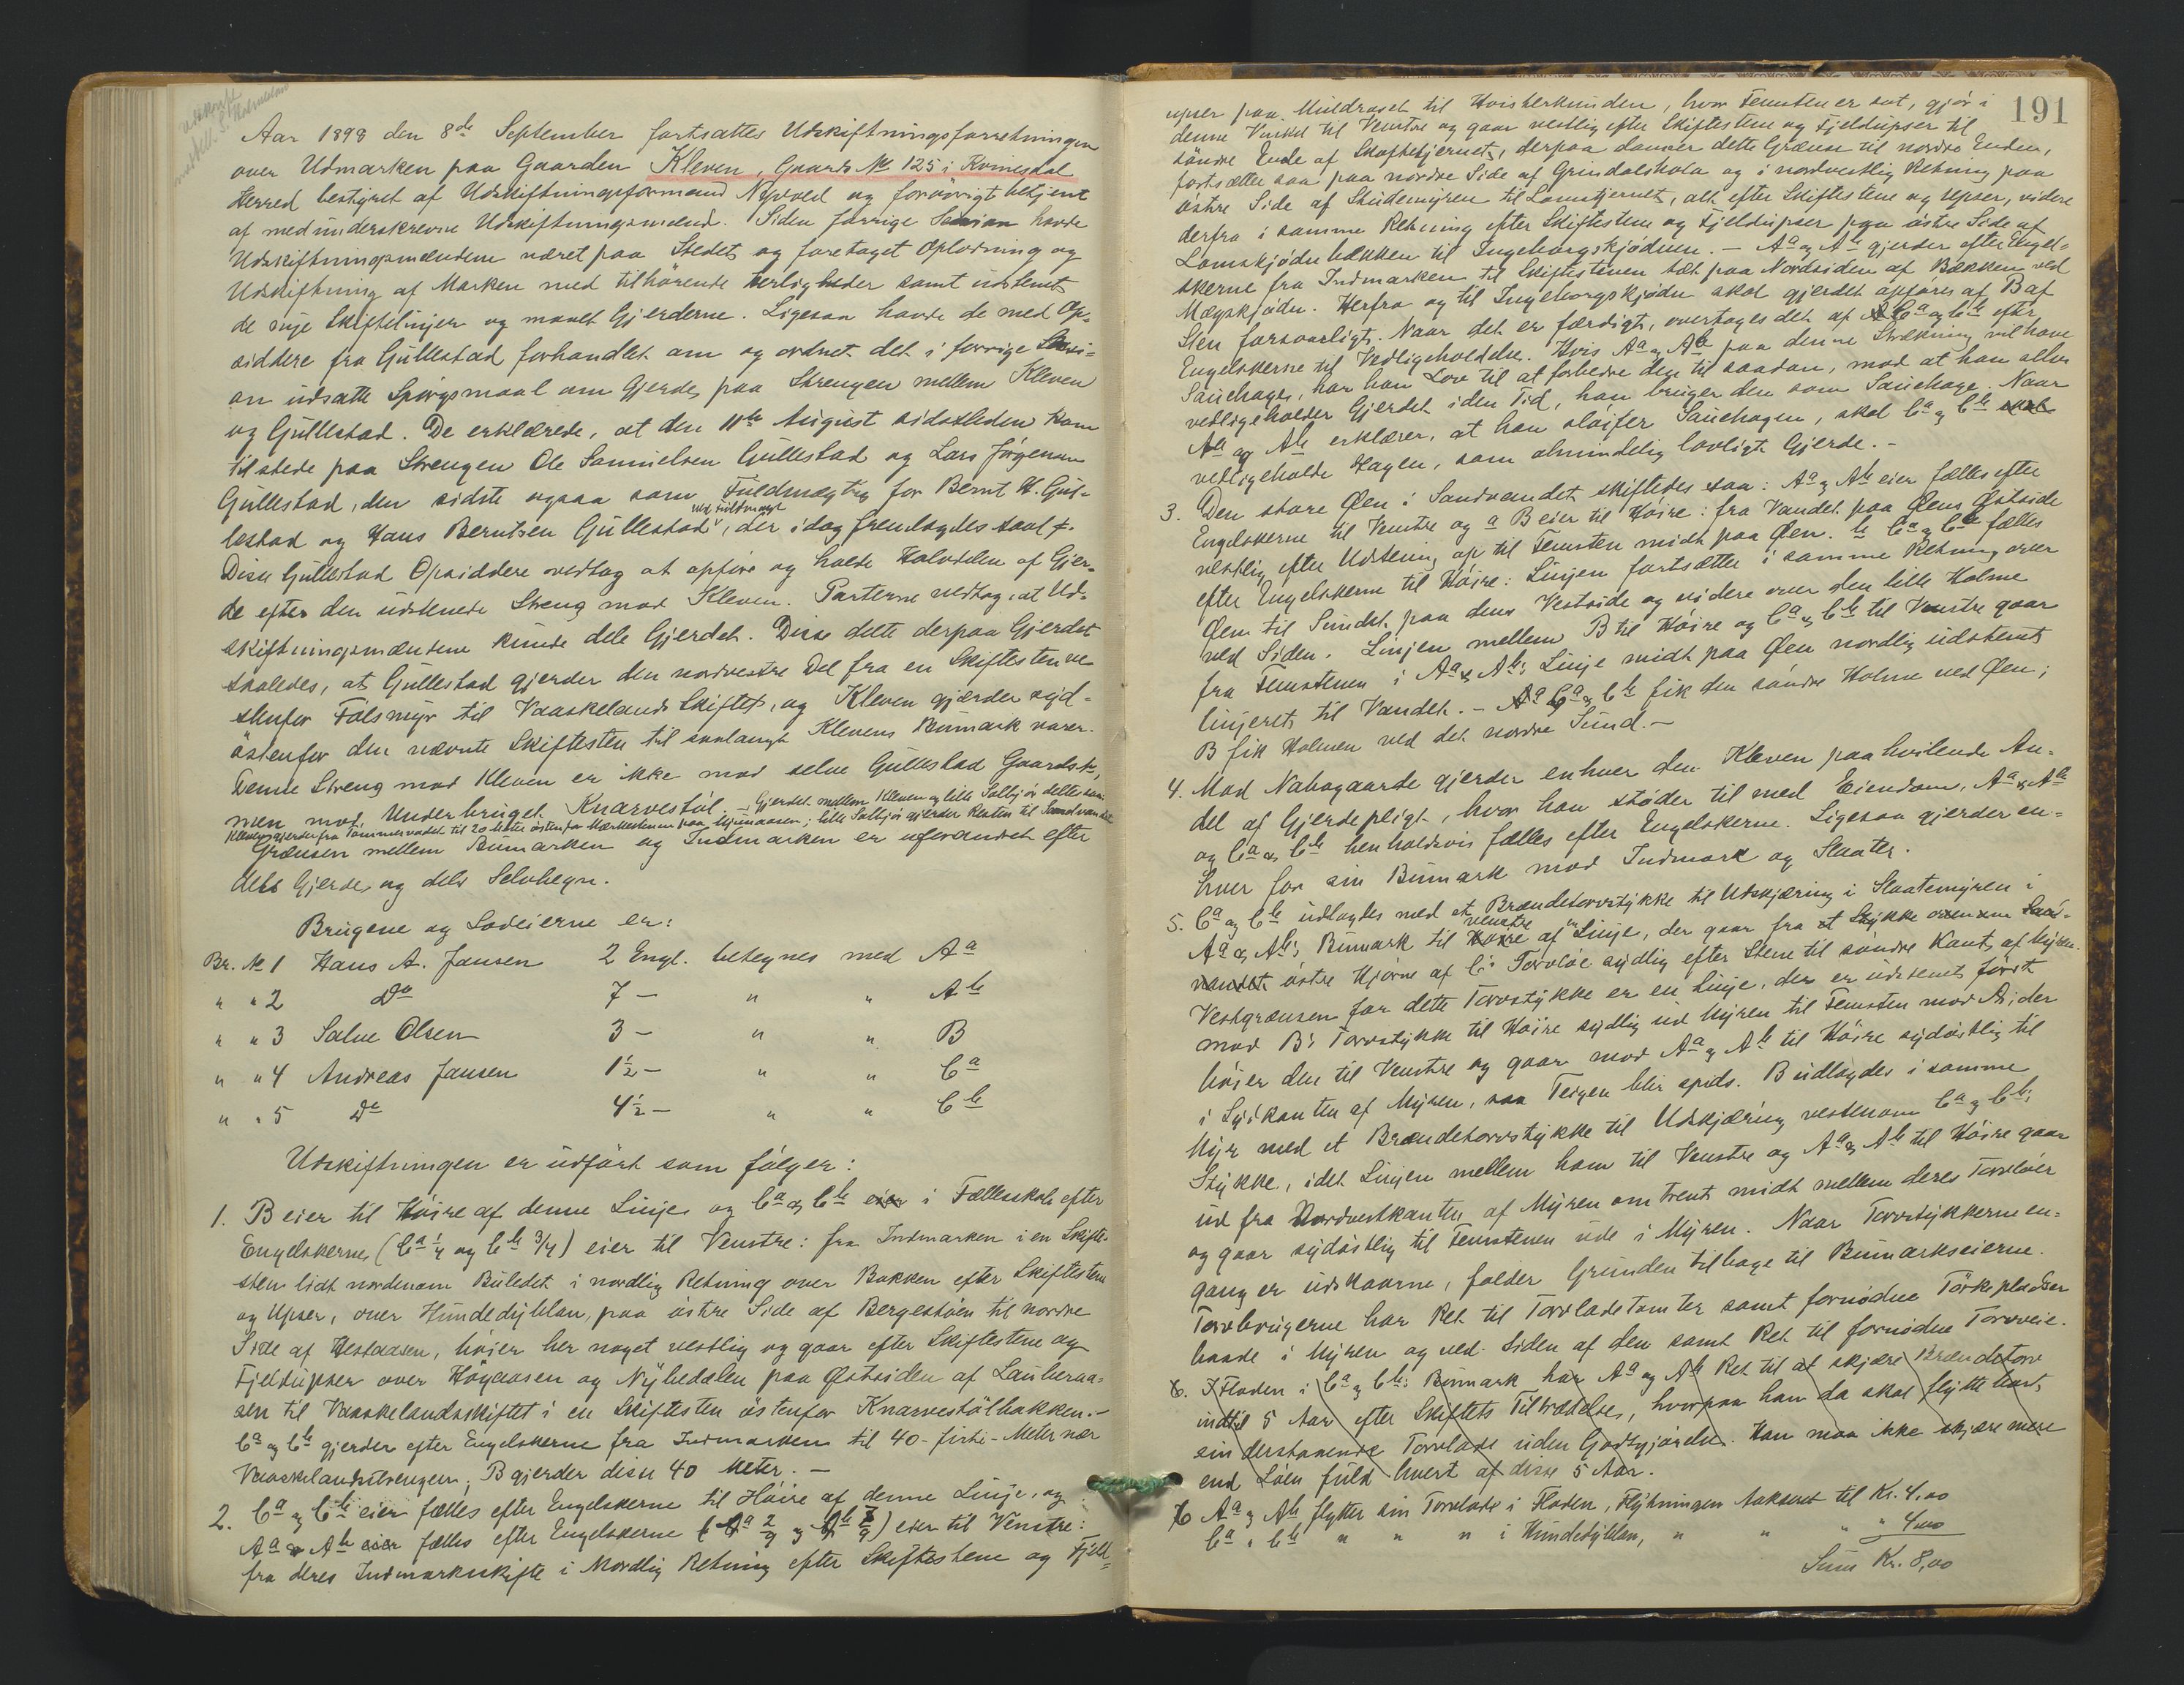 Udskrift
meddelt. S.
Aar 1898 den 8de September fortsattes Udskiftningsforretningen
over Udmarken paa Gaarden Kleven, Gaards № 125 i Kvinesdal
Herred bestyret af Udskiftningsformand Nyvold og forøvrigt betjent
af medunderskrevne Udskiftningsmænd. Siden forrige Session havde
Udskiftningsmændene været paa Stedet og foretaget Oplodning og
Udskiftning af Marken med tilhørende Herligheder samt udstenet
de nye Skiftelinjer og maalt Gjerderne. Ligesaa havde de med Op-
siddere fra Gullestad forhandlet om og ordnet det i forrige Sessi-
on udsatte Spørgsmaal om Gjerde paa Strengen mellem Kleven
og Gullestad. De erklærede, at den 11te August sidstleden kom
tilstede paa Strengen Ole Samuelsen Gullestad og Lars Jørgensen
Gullestad, den sidste ogsaa som Fuldmægtig for Bernt H. Gul-
lestad og Hans Berntsen Gullestad ved fuldmagt, der idag fremlagdes
Disse Gullestad Opsiddere vedtog at opføre og holde Halvdelen af Gjer-
de efter den udstenede Streng mod Kleven. Parterne vedtog, at Ud-
skiftningsmændene kunde dele Gjerdet. Disse delte derpaa Gjerdet
saaledes, at Gullestad gjerder den nordvestre Del fra en Skiftesten ve-
stenfor Falsmyr til Vaaskelands Skiftet, og Kleven gjærder syd-
østenfor den nævnte Skiftesten til saalangt Klevens Bumark varer.
Denne Streng mod Kleven er ikke mod selve Gullestad Gaards №,
men mod Underbruget Knarvestøl. – Gjerdet mellem Kleven og lille Solhjøi deltes saa:
Kleven gjerder fra Tømmervadet til 20 Meter østenfor Mærkestenen paa Mjunaasen; lille Solhjøi gjerder Resten til Sandvandet
Grænsen mellem Bumarken og Indmarken er uforandret efter
dels Gjerde og dels Selvhegn.
Brugene og Lodeierne er:
Br. № 1 Hans A. Jansen 2 Engl. betegnes med Aa
" " 2 Do 7 – " " Ab
" " 3 Salve Olsen 3 – " " B
" " 4 Andreas Jansen 1½ – " " Ca
" " 5 Do 4½ – " " Cb
Udskiftningen er udført som følger:
1. B eier til Høire af denne Linje og Ca og Cb eier i Fællesskab efter
Engelskerne (Ca ¼ og Cb ¾) eier til Venstre: fra Indmarken i en Skifte-
sten lidt nordenom Buledet i nordlig Retning over Bakken efter Skiftestene
og Upser, over Hundedyblan, paa østre Side af Bergestøen til nordre
Side af Hestaasen, bøier her noget vestlig og gaar efter Skiftestene og
Fjeldupser over Høgaasen og Nybedalen paa Østsiden af Lauberaa-
sen til Vaaskelandsskiftet i en Skiftesten østenfor Knarvestølbakken. –
Ca og Cb gjerder efter Engelskerne fra Indmarken til 40 - firti - Meter nær
Vaaskelandsstrengen; B gjerder disse 40 Meter. –
2. Ca og Cb eier fælles efter Engelskerne til Høire af denne Linje, og
Aa og Ab eier fælles efter Engelskerne (Aa 2/9 og Ab 7/9) eier til Venstre:
fra deres Indmarksskifte i Nordlig Retning efter Skiftestene og Fjeld-
191
upser paa Muldraset til Hvisterkunden, hvor Femsten er sat, gjør i
denne Vinkel til Venstre og gaar vestlig efter Skiftestene og Fjeldupser til
søndre Ende af Skaftetjernet, derpaa danner dette Grænse til nordre Enden,
fortsætter saa paa nordre Side af Grindalshola og i nordvestlig Retning paa
østre Side af Studemyren til Lomstjernet, alt efter Skiftestene og Upser, videre
derfra i samme Retning efter Skiftestene og Fjeldupser paa østre Side af
Lomskjødnbækken til Ingeborgskjødnen. – Aa og Ab gjerder efter Engel-
skerne fra Indmarken til Skiftestenen tæt paa Nordsiden af Bækken ved
Mægskjødn. Herfra og til Ingeborgskjødn skal gjerdet opføres af B af
Sten forsvarligt. Naar det er færdigt, overtages det af Ca og Cb efter
Engelskerne til Vedligeholdelse. Hvis Aa og Ab paa denne Strækning vil have
Sauehage, har han Lov til at forbedre den til saadan, mod at han alene
vedligeholder Gjerdet i den Tid, han bruger den som Sauehage. Naar
Aa og Ab erklærer, at han sløifer Sauehagen, skal Ca og Cb skal
vedligeholde Hagen, som almindelig lovligt Gjerde. –
3. Den store Øen i Sandvandet skiftedes saa: Aa og Ab eier fælles efter
Engelskerne til Venstre og a B eier til Høire: fra Vandet paa Øens Østside
vestlig efter Udstening op til Femsten midt paa Øen. b Ca og Cb fælles
efter Engelskerne til Høire: Linjen fortsætter i samme Retning over
Øen til Sundet paa dens Vestside og videre over den lille Holme
ved Siden. Linjen mellem B til Høire og Ca og Cb til Venstre gaar
fra Femstenen i Aa og Ab's Linje midt paa Øen nordlig udstenet
linjeret til Vandet. – Aa Ca og Cb fik den søndre Holme ved Øen;
B fik Holmen ved det nordre Sund. –
4. Mod Nabogaarde gjerder enhver den Kleven paahvilende An-
del af Gjerdepligt, hvor han støder til med Eiendom, Aa og Ab
og Ca og Cb henholdsvis fælles efter Engelskerne. Ligesaa gjerder en-
hver for sin Bumark mod Indmark og Slaater.
5. Ca og Cb udlagdes med et Brændetorvstykke til Udskjæring i Slaatemyren i
Aa og Ab's Bumark til venstre af en Linje, der gaar fra et Stykke
østre Hjørne af C's Torvløe sydlig efter Stene til søndre Kant af Myren.
Vestgrænsen for dette Torvstykke er en Linje, der er udstenet først
mod B's Torvstykke til Høire sydlig ud Myren til Femsten mod A; der
bøier den til Venstre og gaar mod Aa og Ab til Høire sydøstlig til
i Sydkanten af Myren, saa Teigen blir spids. B udlagdes i samme
Myr med et Brændetorvstykke til Udskjæring vestenom Ca og Cb's
Stykke, idet Linjen mellem ham til Venstre og Aa og Ab til Høire gaar
ud fra Nordvestkanten af Myren omtrent midt mellem deres Torvløer
og gaar sydøstlig til Femstenen ude i Myren. Naar Torvstykkerne en-
gang er udskaarne, falder Grunden tilbage til Bumarkseierne.
Torvbrugerne har Ret til Torvladetomter samt fornødne Tørkepladser
baade i Myren og ved Siden af den samt Ret til fornødne Torvveie.
6. I Floden i Ca og Cb's Bumark har Aa og Ab Ret til at skjære Brændetorv
indtil 5 Aar efter Skiftets Tiltrædelse, hvorpaa han da skal flytte bort
sin derstaaende Torvlade uden Godtgjørelse. Han maa ikke skjære mere
end Løen fuld hvert af disse 5 Aar.
6 Aa og Ab flytter sin Torvlade i Floden, Flytningen takseret til Kr. 4,00
Ca " Cb " " " i Hundedyblan, " " " " 4,00
Sum Kr. 8,00